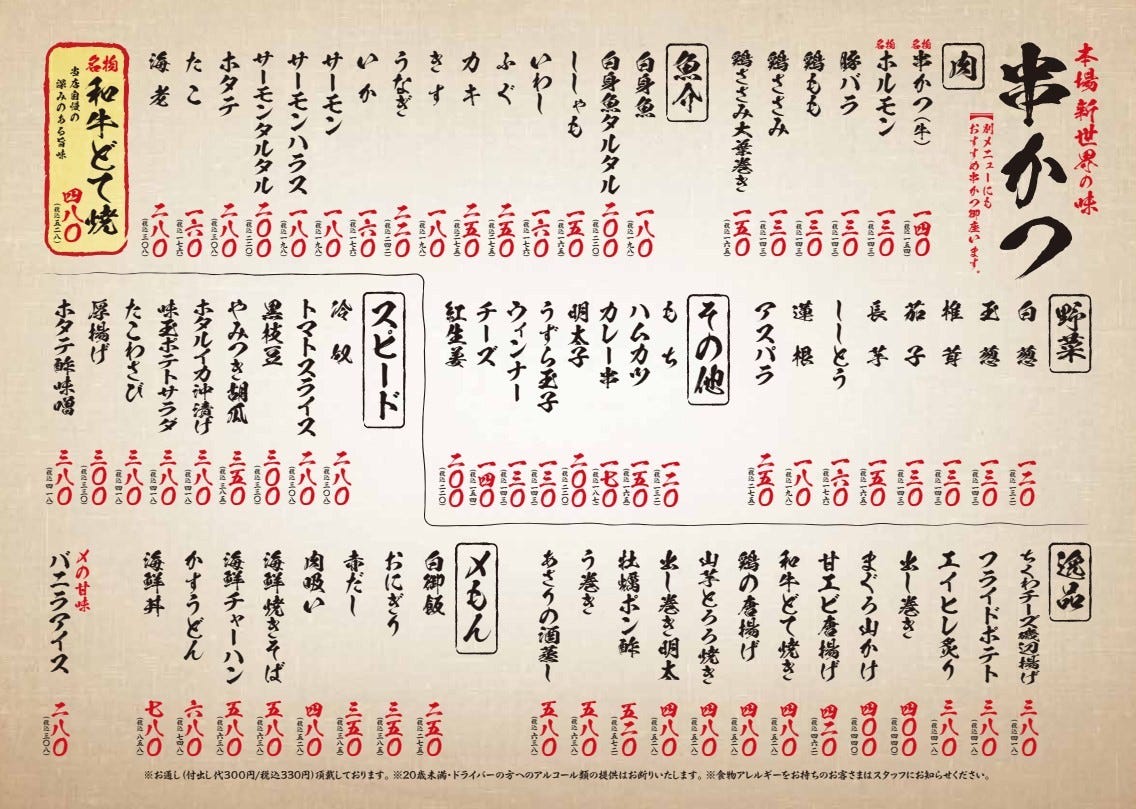 本場 新世界の味
串かつ
【別メニューにも
おすすめ串かつ御座います。
肉
名物 串かつ(牛) 一四〇 (税込一五四)
名物 ホルモン 一三〇 (税込一四三)
豚バラ 一三〇 (税込一四三)
鶏もも 一三〇 (税込一四三)
鶏ささみ 一三〇 (税込一四三)
鶏ささみ大葉巻き 一五〇 (税込一六五)
魚介
白身魚 一八〇 (税込一九八)
白身魚タルタル 二〇〇 (税込二二〇)
ししゃも 一五〇 (税込一六五)
いわし 一六〇 (税込一七六)
ふぐ 二五〇 (税込二七五)
カキ 二五〇 (税込二七五)
きす 一八〇 (税込一九八)
うなぎ 二二〇 (税込二四二)
いか 一六〇 (税込一七六)
サーモン 一八〇 (税込一九八)
サーモンハラス 一八〇 (税込一九八)
サーモンタルタル 二〇〇 (税込二二〇)
ホタテ 二八〇 (税込三〇八)
たこ 一六〇 (税込一七六)
海老 二八〇 (税込三〇八)
名物 和牛どて焼 四八〇 (税込五二八)
当店自慢の
深みのある旨味
野菜
白葱 一二〇 (税込一三二)
玉葱 一三〇 (税込一四三)
椎茸 一三〇 (税込一四三)
茄子 一三〇 (税込一四三)
長芋 一五〇 (税込一六五)
ししとう 一六〇 (税込一七六)
蓮根 一八〇 (税込一九八)
アスパラ 二五〇 (税込二七五)
その他
もち 一二〇 (税込一三二)
ハムカツ 一五〇 (税込一六五)
カレー串 一七〇 (税込一八七)
明太子 二〇〇 (税込二二〇)
うずら玉子 一三〇 (税込一四三)
ウィンナー 一三〇 (税込一四三)
チーズ 一四〇 (税込一五四)
紅生姜 二〇〇 (税込二二〇)
スピード
冷奴 二八〇 (税込三〇八)
トマトスライス 二八〇 (税込三〇八)
黒枝豆 三〇〇 (税込三三〇)
やみつき胡瓜 三五〇 (税込三八五)
ホタルイカ沖漬け 三八〇 (税込四一八)
味玉ポテトサラダ 三八〇 (税込四一八)
たこわさび 三八〇 (税込四一八)
厚揚げ 三〇〇 (税込三三〇)
ホタテ酢味噌 三八〇 (税込四一八)
逸品
ちくわチーズ磯辺揚げ 三八〇 (税込四一八)
フライドポテト 三八〇 (税込四一八)
エイヒレ炙り 三八〇 (税込四一八)
出し巻き 四〇〇 (税込四四〇)
まぐろ山かけ 四〇〇 (税込四四〇)
甘エビ唐揚げ 四二〇 (税込四六二)
和牛どて焼き 四八〇 (税込五二八)
鶏の唐揚げ 四八〇 (税込五二八)
山芋とろろ焼き 四八〇 (税込五二八)
出し巻き明太 四八〇 (税込五二八)
牡蠣ポン酢 五二〇 (税込五七二)
う巻き 五八〇 (税込六三八)
あさりの酒蒸し 五八〇 (税込六三八)
〆もん
白御飯 二五〇 (税込二七五)
おにぎり 三五〇 (税込三八五)
赤だし 三五〇 (税込三八五)
肉吸い 四八〇 (税込五二八)
海鮮焼きそば 五八〇 (税込六三八)
海鮮チャーハン 五八〇 (税込六三八)
かすうどん 六八〇 (税込七四八)
海鮮丼 七八〇 (税込八五八)
〆の甘味
バニラアイス 二八〇 (税込三〇八)
※お通し(付出し代300円/税込330円)頂戴しております。※20歳未満・ドライバーの方へのアルコール類の提供はお断りいたします。※食物アレルギーをお持ちのお客さまはスタッフにお知らせください。